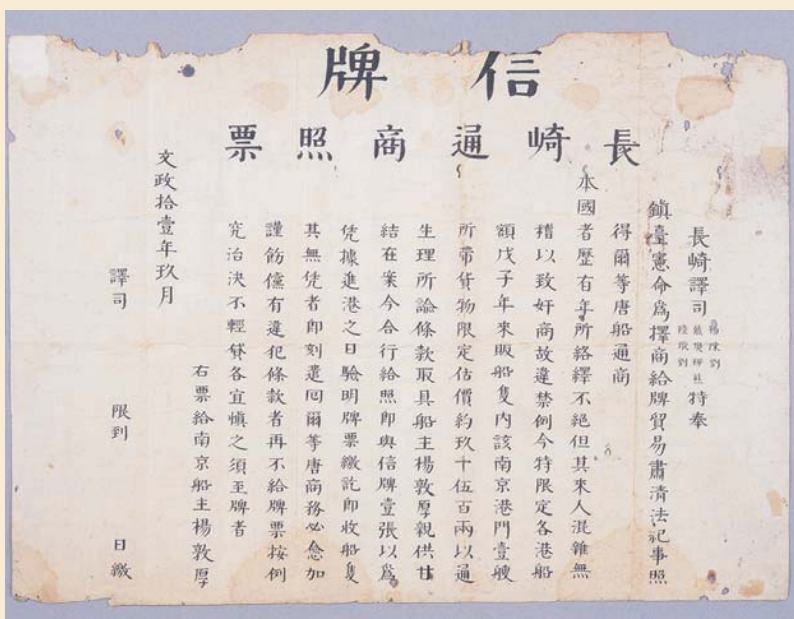 信牌
長崎通商照票
長崎譯司 特奉
鎮臺憲命爲擇商給牌貿易肅清法紀事照
得爾等唐船通商
本國者歷有年所絡繹不絕但其來人混雜無
稽以致奸商故違禁例今特限定各港船
額戊子年來販船隻內該南京港門壹艘
所帶貨物限定估價約玖千伍百兩以通
生理所論條款取具船主楊敦厚親供甘
結在案今合行給照即與信牌壹張以爲
凭據進港之日驗明牌票繳訖即收船隻
其無凭者即刻遣囘爾等唐商務必愈加
謹飭儻有違犯條款者再不給牌票按例
究治決不輕貸各宜愼之須至牌者
右票給南京船主楊敦厚
文政拾壹年玖月
譯司 限到 日繳